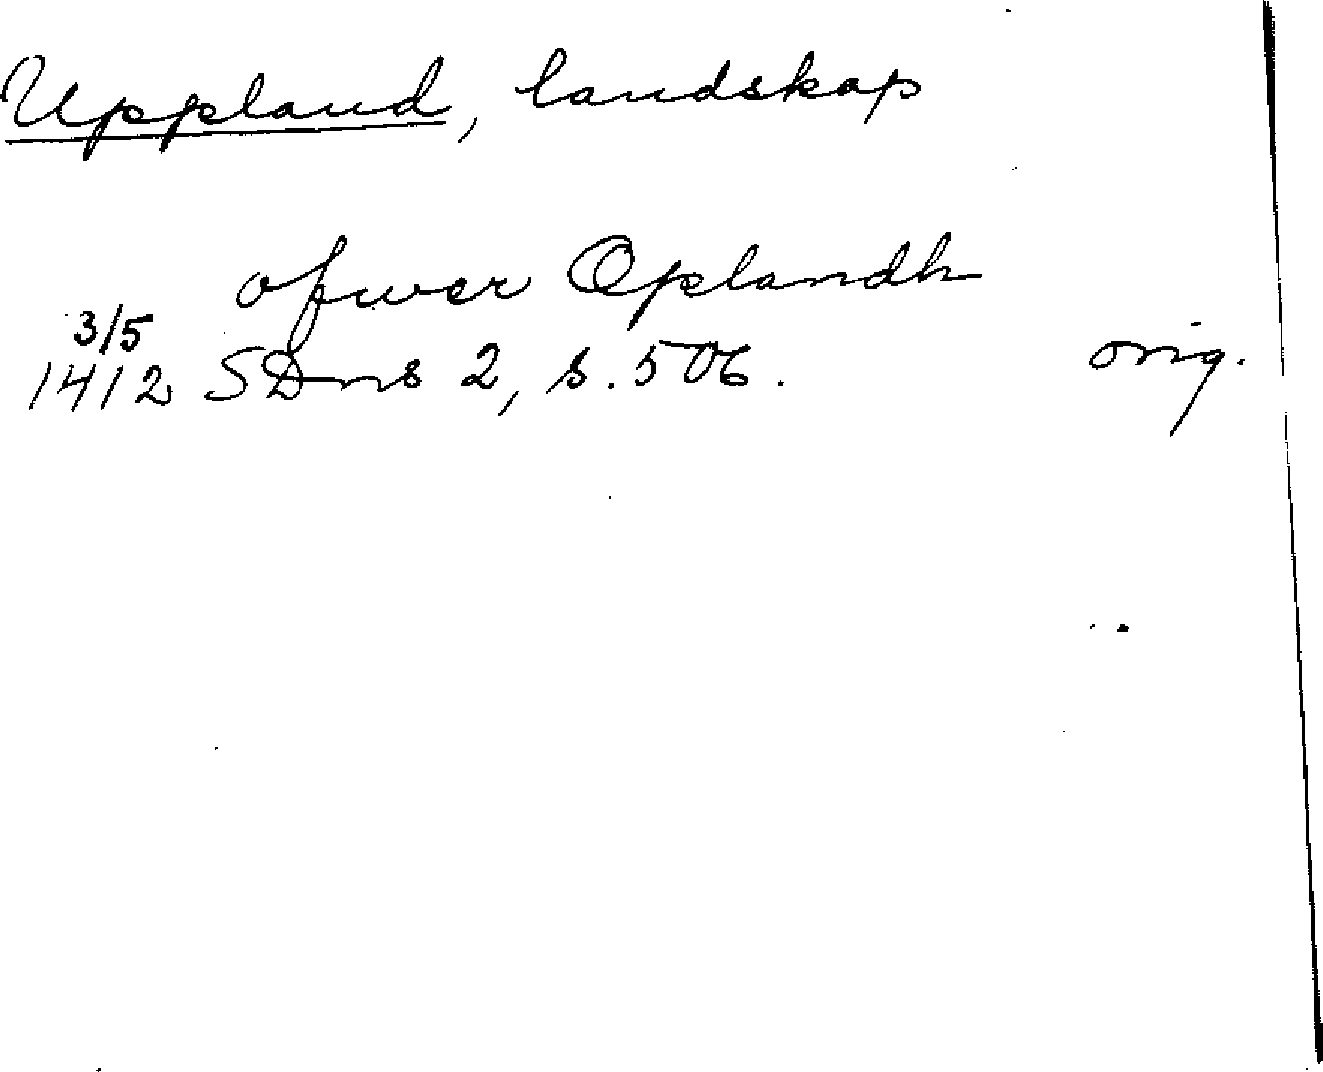 Uppland, landskap
ofwer Oplandh
3/5
1412 SDns 2, s. 506. orig.